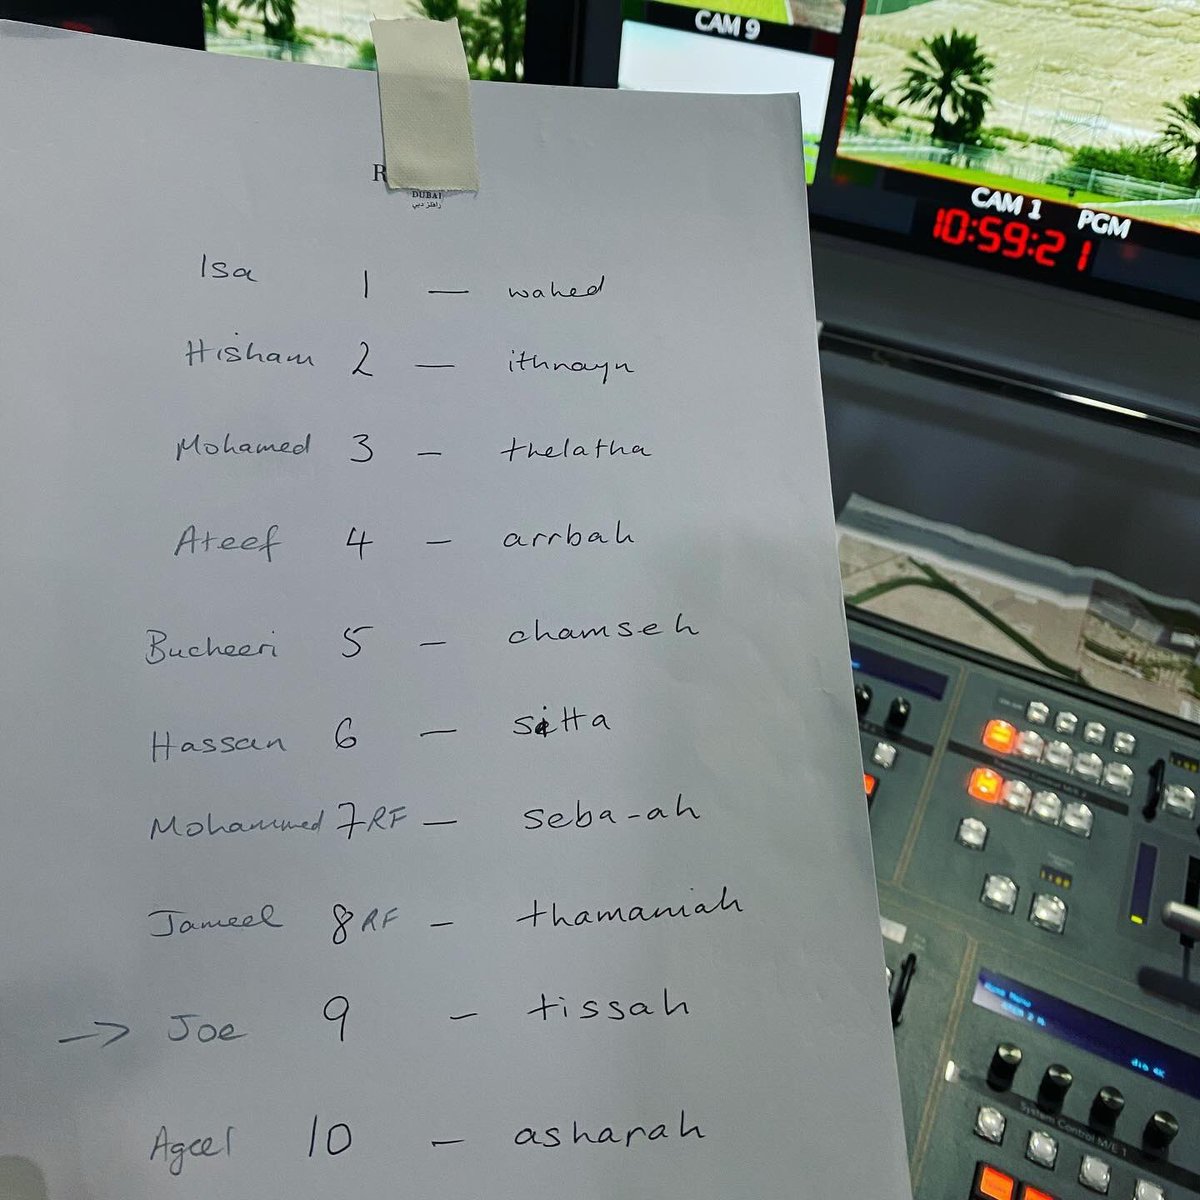 CAM 9
CAM 1 PGM
10:59:21
R
DUBAI
رافلز دبي
Isa 1 — wahed
Hisham 2 — ithnayn
Mohamed 3 — thelatha
Ateef 4 — arrbah
Bucheeri 5 — chamseh
Hassan 6 — sitta
Mohammed 7 RF — seba-ah
Jameel 8 RF — thamaniah
→ Joe 9 — tissah
Aqeel 10 — asharah
System Control M/E 1